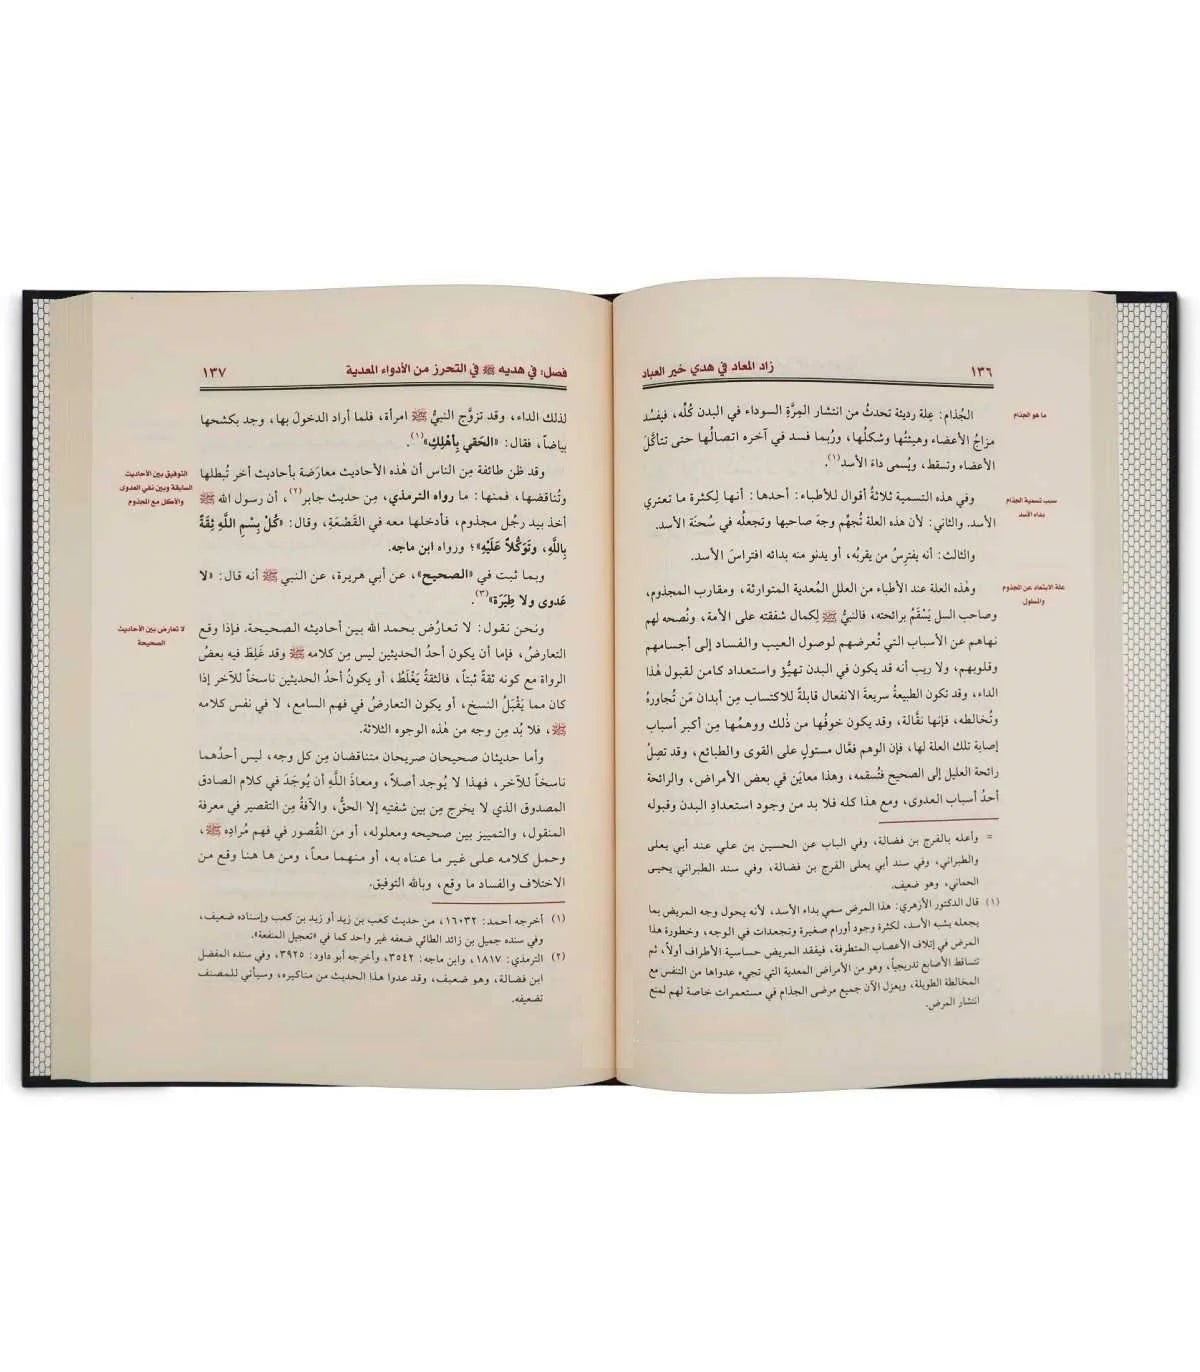 ١٣٦
زاد المعاد في هدي خير العباد
ما هو الجذام
الجُذام: عِلة رديئة تحدثُ من انتشار المِرَّةِ السوداء في البدن كُلِّه، فيفسُد
مزاجُ الأعضاء وهيئتُها وشكلُها، ورُبما فسد في آخره اتصالُها حتى تتأكَّلَ
الأعضاء وتسقط، ويُسمى داءَ الأسد(١).
سبب تسمية الجذام
بداء الأسد
وفي هذه التسمية ثلاثةُ أقوال للأطباء: أحدها: أنها لِكثرة ما تعتري
الأسد. والثاني: لأن هذه العلة تُجَهِّم وجهَ صاحبها وتجعلُه في سُحنَة الأسد.
والثالث: أنه يفترِسُ من يقربُه، أو يدنو منه بدائه افتراسَ الأسد.
علة الابتعاد عن المجذوم
والمسلول
وهٰذه العلة عند الأطباء من العلل المُعدية المتوارثة، ومقارب المجذوم،
وصاحب السل يَسْقَمُ برائحته، فالنبيُّ ﷺ لِكمال شفقته على الأمة، ونُصحه لهم
نهاهم عن الأسباب التي تُعرضهم لوصول العيب والفساد إلى أجسامهم
وقلوبهم، ولا ريب أنه قد يكون في البدن تهيُّؤ واستعداد كامن لقبول هٰذا
الداء، وقد تكون الطبيعةُ سريعةَ الانفعال قابلةً للاكتساب مِن أبدان مَن تُجاورهُ
وتُخالطه، فإنها نقَّالة، وقد يكون خوفُها من ذٰلك ووهمُها مِن أكبر أسباب
إصابة تلك العلة لها، فإن الوهم فعَّال مستولٍ على القوى والطبائع، وقد تصِلُ
رائحة العليل إلى الصحيح فتُسقمه، وهذا معايَن في بعض الأمراض، والرائحة
أحدُ أسباب العدوى، ومع هذا كله فلا بد من وجود استعدادِ البدن وقبوله
= وأعله بالفرج بن فضالة، وفي الباب عن الحسين بن علي عند أبي يعلى
والطبراني، وفي سند أبي يعلى الفرج بن فضالة، وفي سند الطبراني يحيى
الحماني، وهو ضعيف.
(١) قال الدكتور الأزهري: هذا المرض سمي بداء الأسد، لأنه يحول وجه المريض بما
يجعله يشبه الأسد، لكثرة وجود أورام صغيرة وتجعدات في الوجه، وخطورة هذا
المرض في إتلاف الأعصاب المتطرفة، فيفقد المريض حساسية الأطراف أولاً، ثم
تتساقط الأصابع تدريجياً، وهو من الأمراض المعدية التي تجيء عدواها من التنفس مع
المخالطة الطويلة، ويعزل الآن جميع مرضى الجذام في مستعمرات خاصة لهم لمنع
انتشار المرض.
فصل: في هديه ﷺ في التحرز من الأدواء المعدية
١٣٧
لذلك الداء، وقد تزوَّج النبيُّ ﷺ امرأة، فلما أراد الدخولَ بها، وجد بكشحها
بياضاً، فقال: «الحَقي بِأَهْلِكِ»(١).
التوفيق بين الأحاديث
السابقة وبين نفي العدوى
والأكل مع المجذوم
وقد ظن طائفة مِن الناس أن هٰذه الأحاديث معارَضة بأحاديث أخر تُبطلها
وتُناقضها، فمنها: ما رواه الترمذي، مِن حديث جابر(٢)، أن رسول الله ﷺ
أخذ بيد رجُل مجذوم، فأدخلها معه في القَصْعَةِ، وقال: «كُلْ بِسْمِ اللَّهِ ثِقَةً
بِاللَّهِ، وتَوَكُّلاً عَلَيْهِ»؛ ورواه ابن ماجه.
وبما ثبت في «الصحيح»، عن أبي هريرة، عن النبي ﷺ أنه قال: «لا
عَدوى ولا طِيَرَة»(٣).
لا تعارض بين الأحاديث
الصحيحة
ونحن نقول: لا تعارُض بحمد الله بين أحاديثه الصحيحة. فإذا وقع
التعارضُ، فإما أن يكون أحدُ الحديثين ليس مِن كلامه ﷺ وقد غَلِطَ فيه بعضُ
الرواة مع كونه ثقةً ثبتاً، فالثقةُ يَغْلَطُ، أو يكونُ أحدُ الحديثين ناسخاً للآخر إذا
كان مما يَقْبَلُ النسخ، أو يكون التعارضُ في فهم السامع، لا في نفس كلامه
ﷺ، فلا بُد مِن وجه من هٰذه الوجوه الثلاثة.
وأما حديثان صحيحان صريحان متناقضان مِن كل وجه، ليس أحدُهما
ناسخاً للآخر، فهذا لا يُوجد أصلاً، ومعاذَ اللَّهِ أن يُوجَدَ في كلام الصادق
المصدوق الذي لا يخرج مِن بين شفتيه إلا الحقُّ، والآفةُ مِن التقصير في معرفة
المنقول، والتمييز بين صحيحه ومعلوله، أو من القُصور في فهم مُرادِه ﷺ،
وحمل كلامه على غير ما عناه به، أو منهما معاً، ومن ها هنا وقع من
الاختلاف والفساد ما وقع، وبالله التوفيق.
(١) أخرجه أحمد: ١٦٠٣٢، من حديث كعب بن زيد أو زيد بن كعب وإسناده ضعيف،
وفي سنده جميل بن زائد الطائي ضعفه غير واحد كما في «تعجيل المنفعة».
(٢) الترمذي: ١٨١٧، وابن ماجه: ٣٥٤٢، وأخرجه أبو داود: ٣٩٢٥، وفي سنده المفضل
ابن فضالة، وهو ضعيف، وقد عدوا هذا الحديث من مناكيره، وسيأتي للمصنف
تضعيفه.